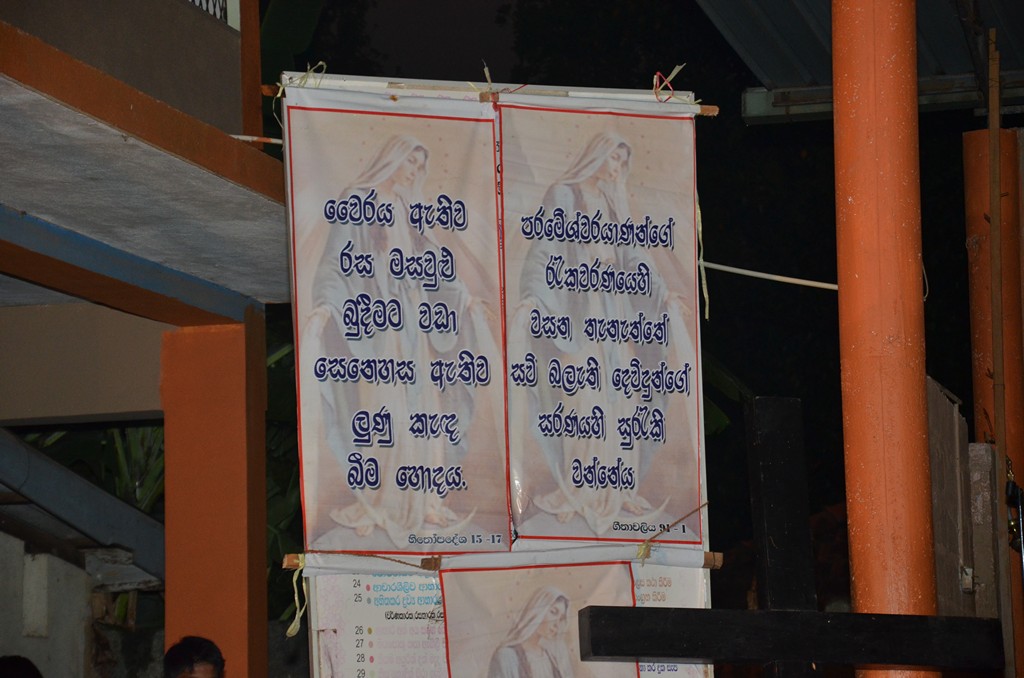 වෛරය ඇතිව
රස මසවුළු
බුදීමට වඩා
සෙනෙහස ඇතිව
ලුණු කැඳ
බීම හොදය.
හිතෝපදේශ 15 -17
පරමේශ්වරයාණන්ගේ
රැකවරණයෙහි
වසන තැනැත්තේ
සව් බලැති දෙවිදුන්ගේ
සරණයහි සුරැකි
වන්නේය
ගීතාවලිය 91 - 1
24
25
26
27
28
29